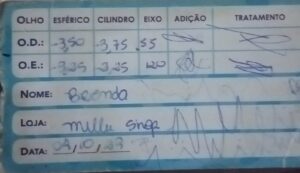 OLHO ESFÉRICO CILINDRO EIXO ADIÇÃO TRATAMENTO
O.D.: -3,50 -3,75 55
O.E.: -3,25 -3,25 120
NOME: Brenda
LOJA: Millu Sinop
DATA: 04/10/23